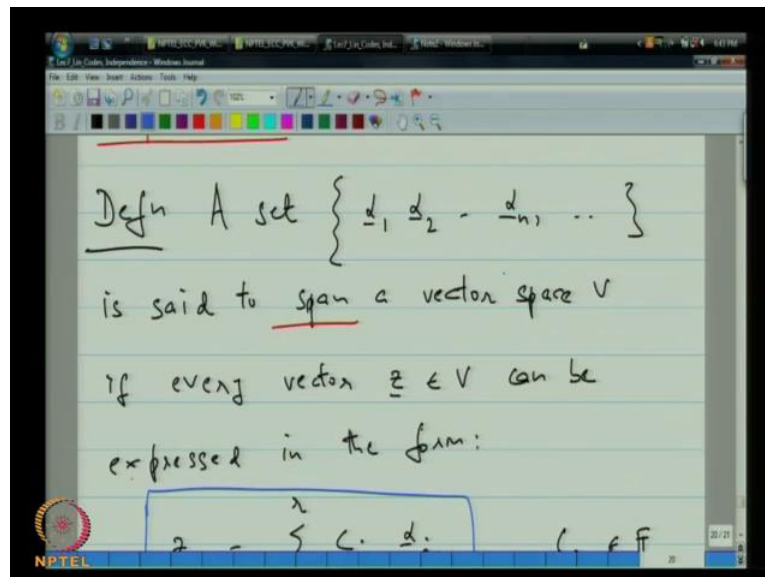 Lec7_Lin_Codes, Independence - Windows Journal
File Edit View Insert Actions Tools Help
Defn A set { α₁ α₂ - αₙ, .. }
is said to span a vector space V
if every vector z ∈ V can be
expressed in the form:
z = Σ cᵢ αᵢ cᵢ ∈ F
20/21
20
NPTEL